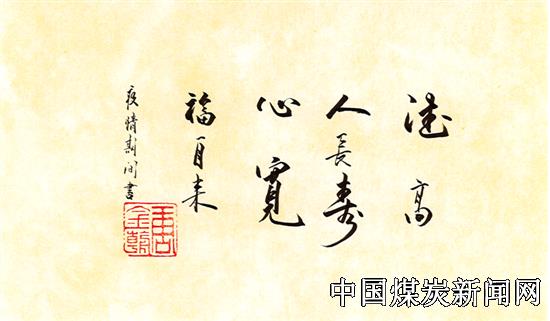 德高
人長寿
心寬
福自来
疫情期间書
中国煤炭新闻网